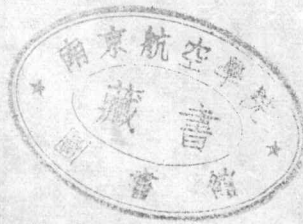 南京航空學院
藏書
圖書館